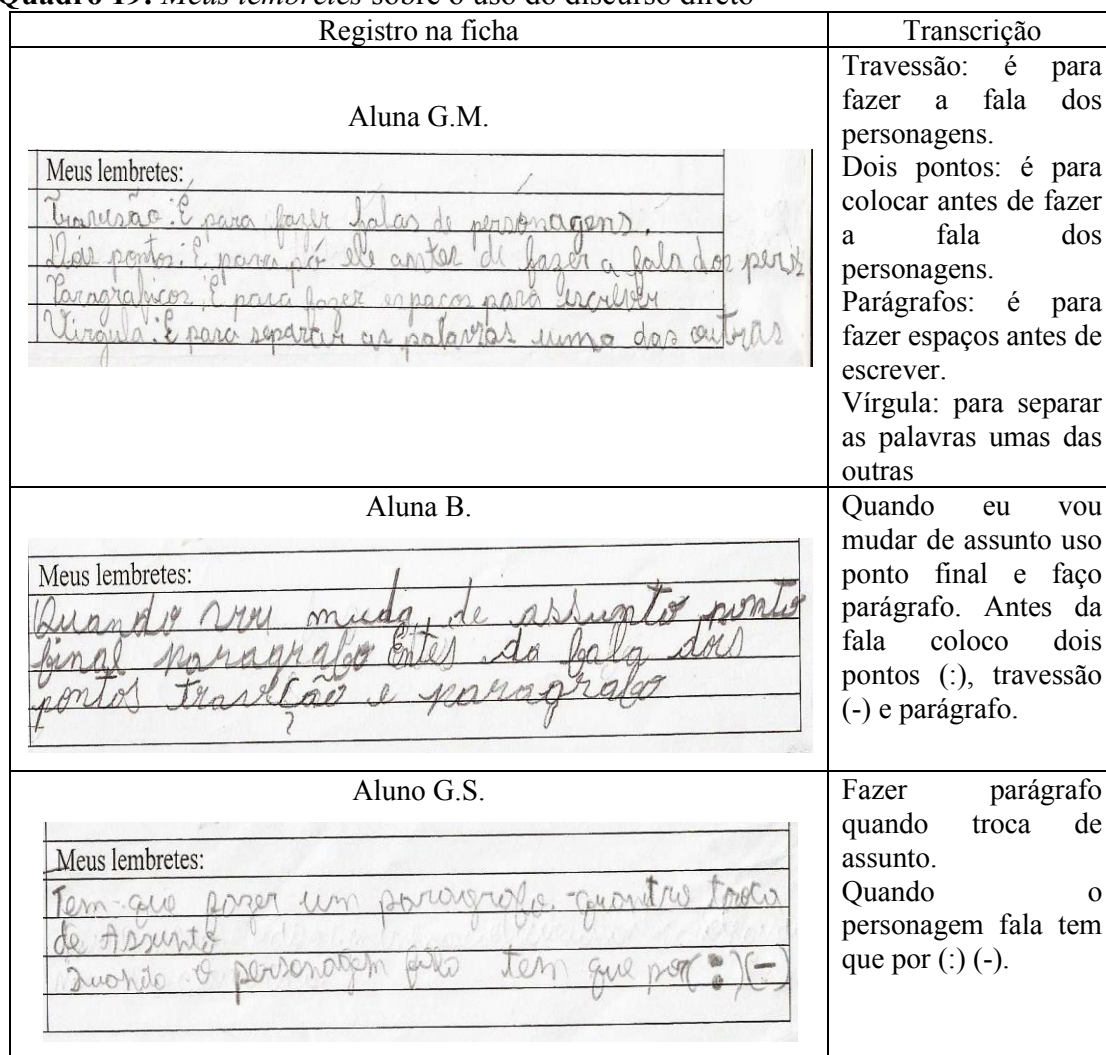 Quadro 19: Meus lembretes sobre o uso do discurso direto
Registro na ficha
Transcrição
Aluna G.M.
Meus lembretes:
Travesão: É para fazer falas de personagens.
Dois pontos: É para pó ele antes de fazer a fala dos pers
Paragraficos: É para fazer espacos para escrever
Virgula: É para separar as palavras uma das outras
Travessão: é para
fazer a fala dos
personagens.
Dois pontos: é para
colocar antes de fazer
a fala dos
personagens.
Parágrafos: é para
fazer espaços antes de
escrever.
Vírgula: para separar
as palavras umas das
outras
Aluna B.
Meus lembretes:
Quando vou muda de assunto ponto
final paragrafo Entes da fala dois
pontos traveção e paragrafo
Quando eu vou
mudar de assunto uso
ponto final e faço
parágrafo. Antes da
fala coloco dois
pontos (:), travessão
(-) e parágrafo.
Aluno G.S.
Meus lembretes:
Tem que fazer um paragrafo troca
de Assunto
Quando o personagem fala tem que por (:) (-)
Fazer parágrafo
quando troca de
assunto.
Quando o
personagem fala tem
que por (:) (-).